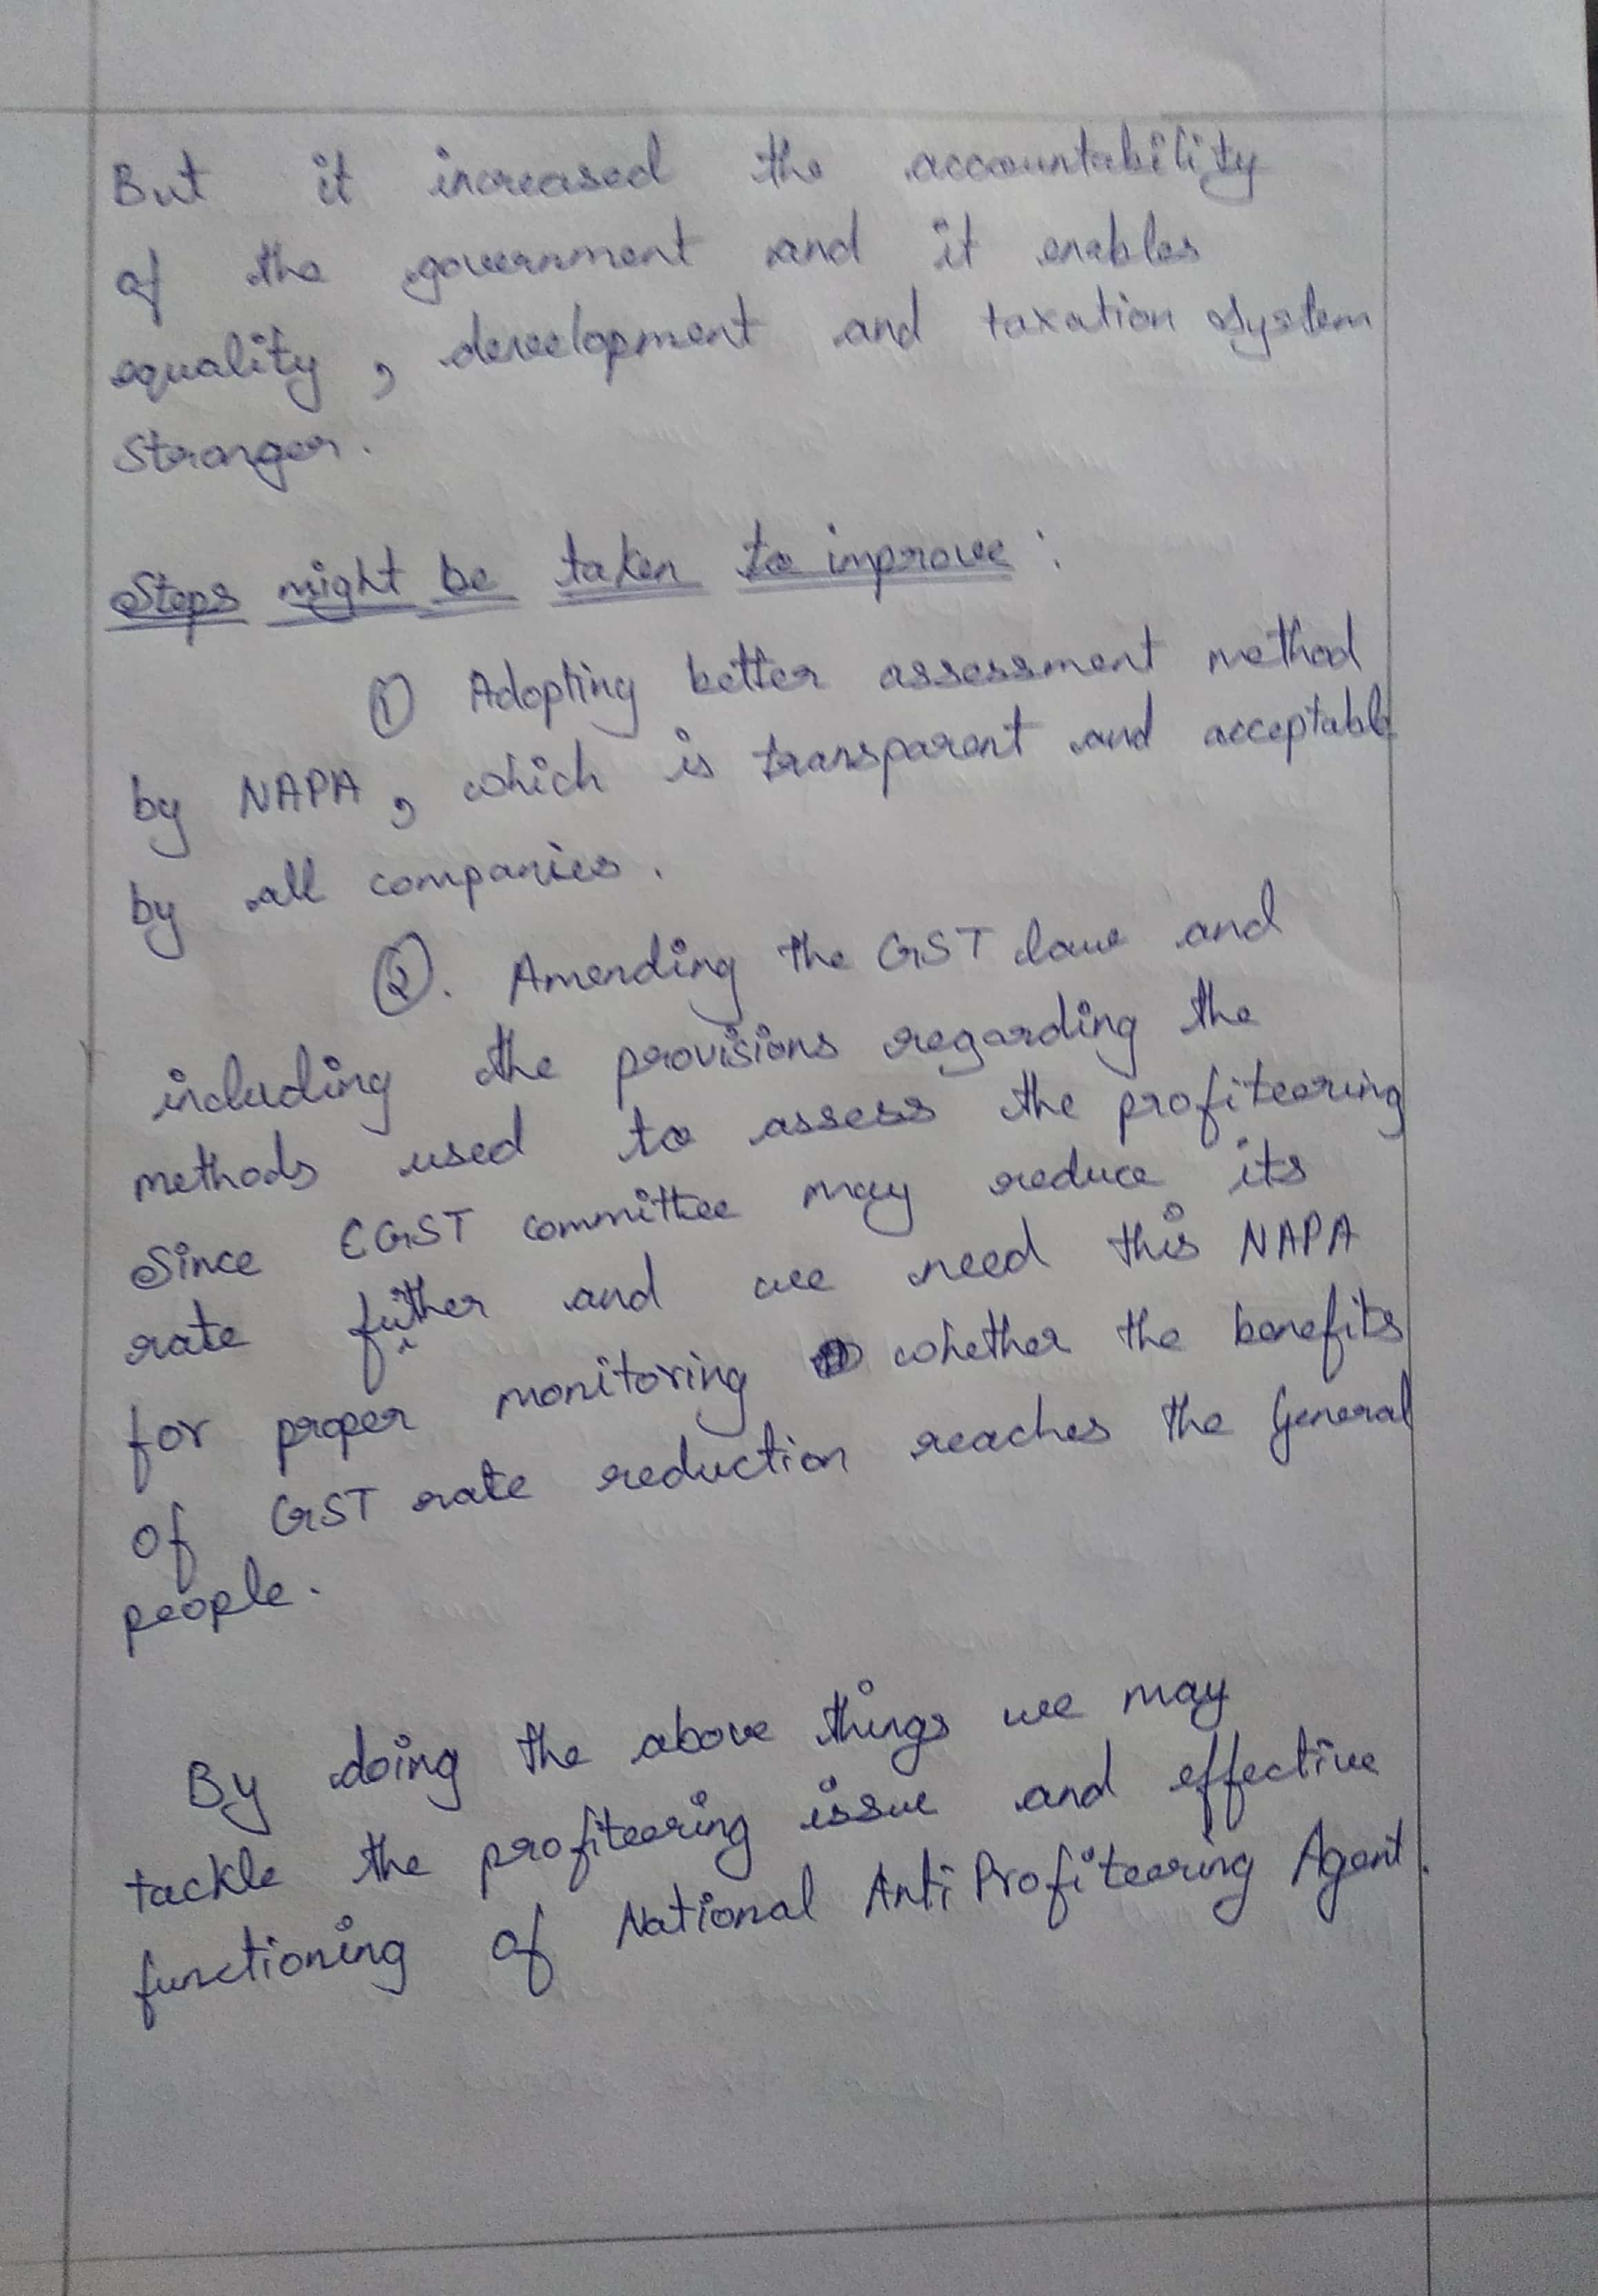 But it increased the accountability
of the government and it enables
equality, development and taxation system
stronger.
Steps might be taken to improve:
① Adopting better assessment method
by NAPA, which is transparent and acceptable
by all companies.
②. Amending the GST law and
including the provisions regarding the
methods used to assess the profiteering
Since GST committee may reduce its
rate futher and we need this NAPA
for proper monitoring whether the benefits
of GST rate reduction reaches the General
people.
By doing the above things we may
tackle the profiteering issue and effective
functioning of National Anti Profiteering Agent.